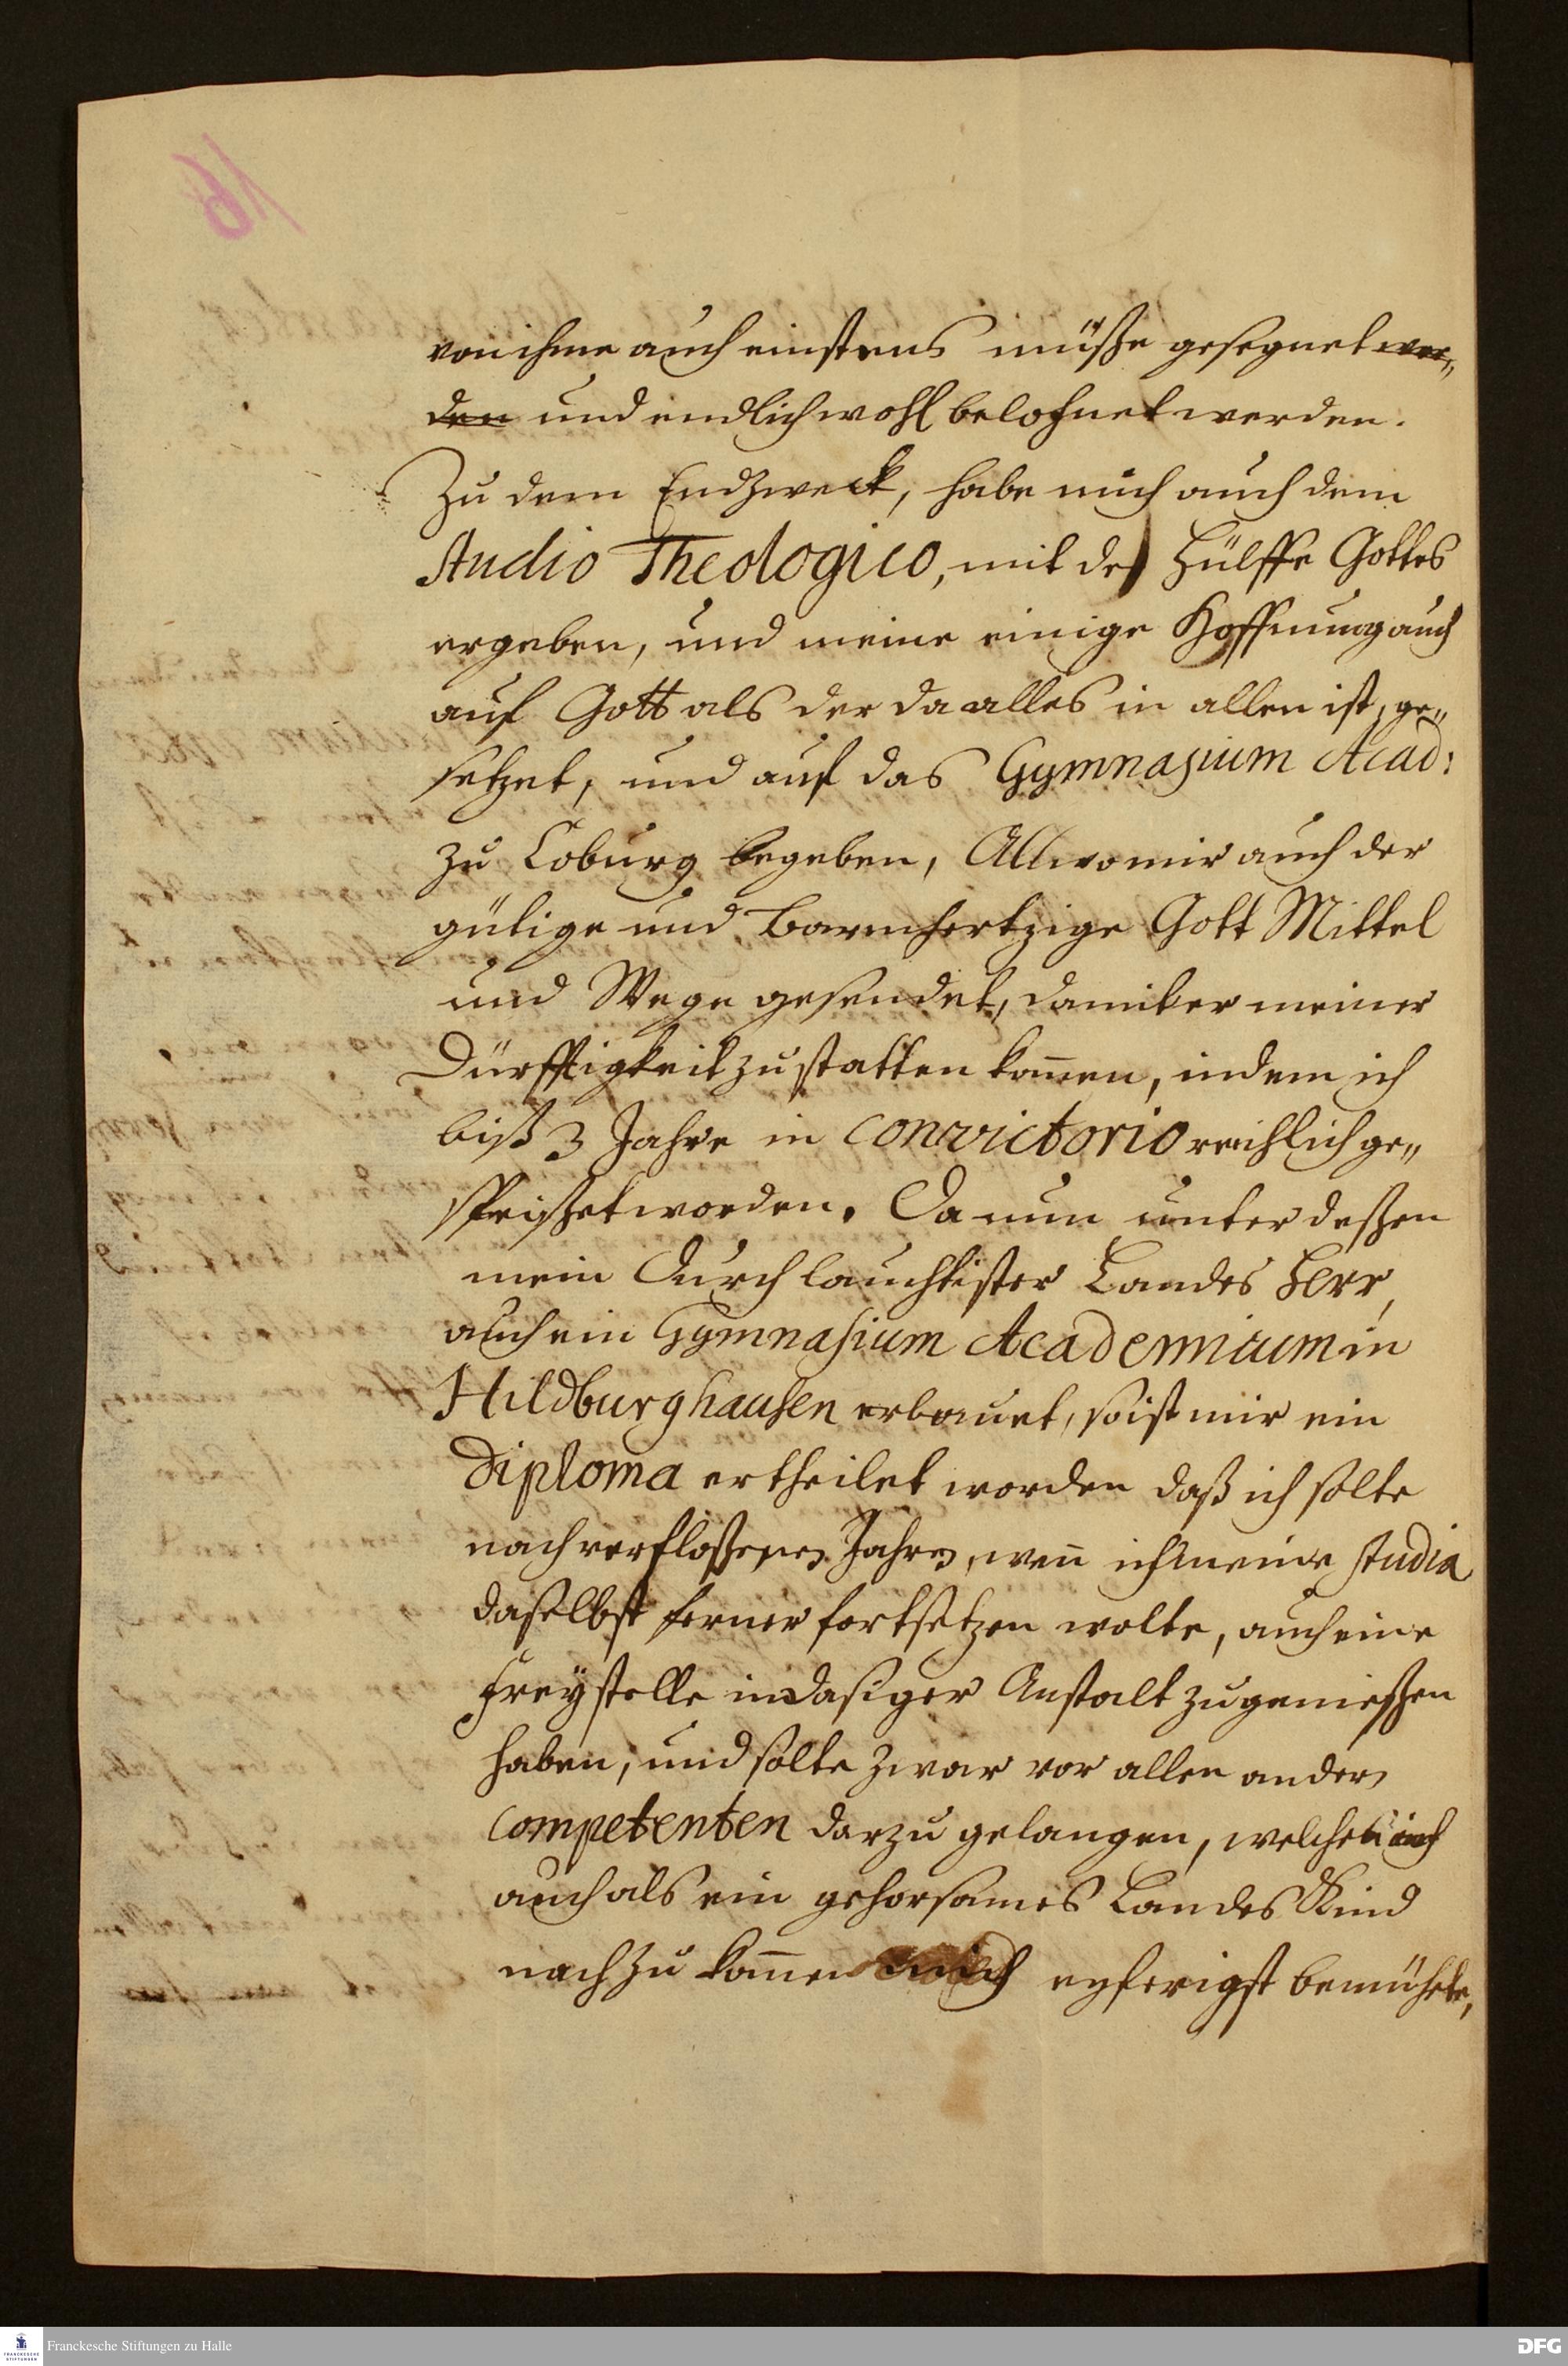 von ihme auch einstens müße gesegnet wer„
den und endlich wohl belohnet werden.
Zu dem Endzweck, habe mich auch dem
Studio Theologico, mit der Hülffe Gottes
ergeben, und meine einige Hoffnung auch
auf Gott als der da alles in allen ist, ge„
setzet, und auf das Gymnasium Acad:
zu Coburg begeben, Allwo mir auch der
gütige und barmhertzige Gott Mittel
und Wege gesendet, damit er meiner
Dürfftigkeit zu statten kom̅en, indem ich
biß 3 Jahre in Convictorio reichlich ge„
speißet worden. Da nun unter deßen
mein Durchlauchtister Landes Herr,
auch ein Gymnasium Academicum in
Hildburghausen erbauet, so ist mir ein
Diploma ertheilet worden daß ich solte
nach verfloßenen Jahren, wen̅ ich meine Studia
daselbst ferner fortsetzen wolte, auch eine
Freystelle in dasiger Anstalt zu genießen
haben, und solte zwar vor allen andern
Competenten darzu gelangen, welchen ich
auch als ein gehorsames Landes Kind
nach zu kom̅en mich eyferigst bemühete,
16
Franckesche Stiftungen zu Halle
DFG